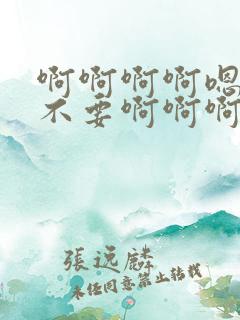 啊啊啊啊嗯
不要啊啊啊
張远麟
未经同意禁止转载